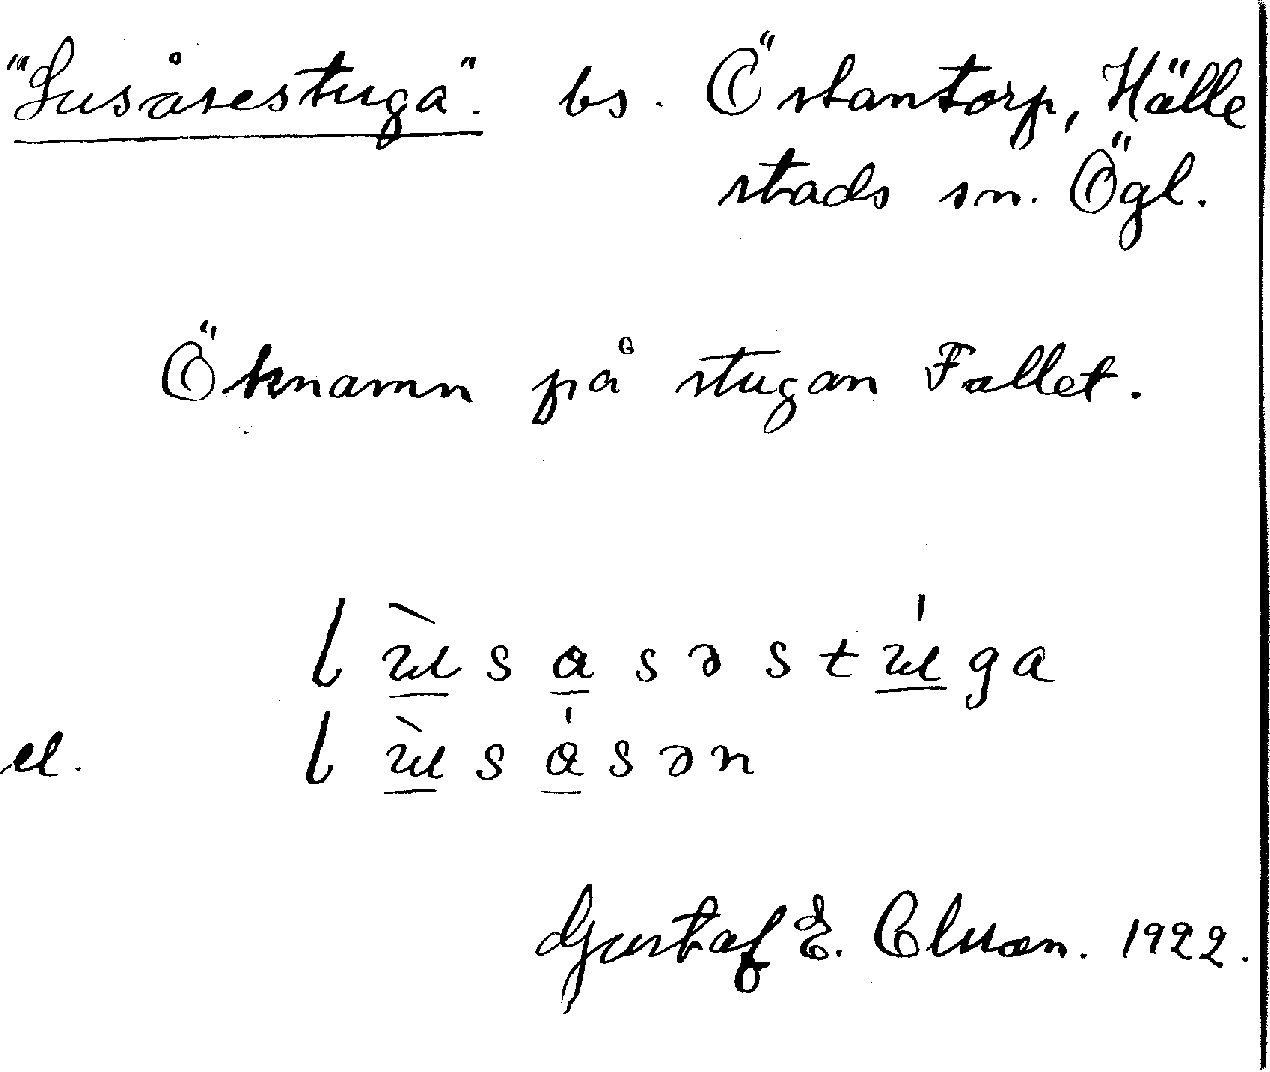 "Lusåsestuga". bs. Östantorp, Hälle
stads sn. Ögl.
Öknamn på stugan Fallet.
l ù s a s ə s t ú g a
el. l ù s á s ə n
Gustaf E. Cluson. 1922.